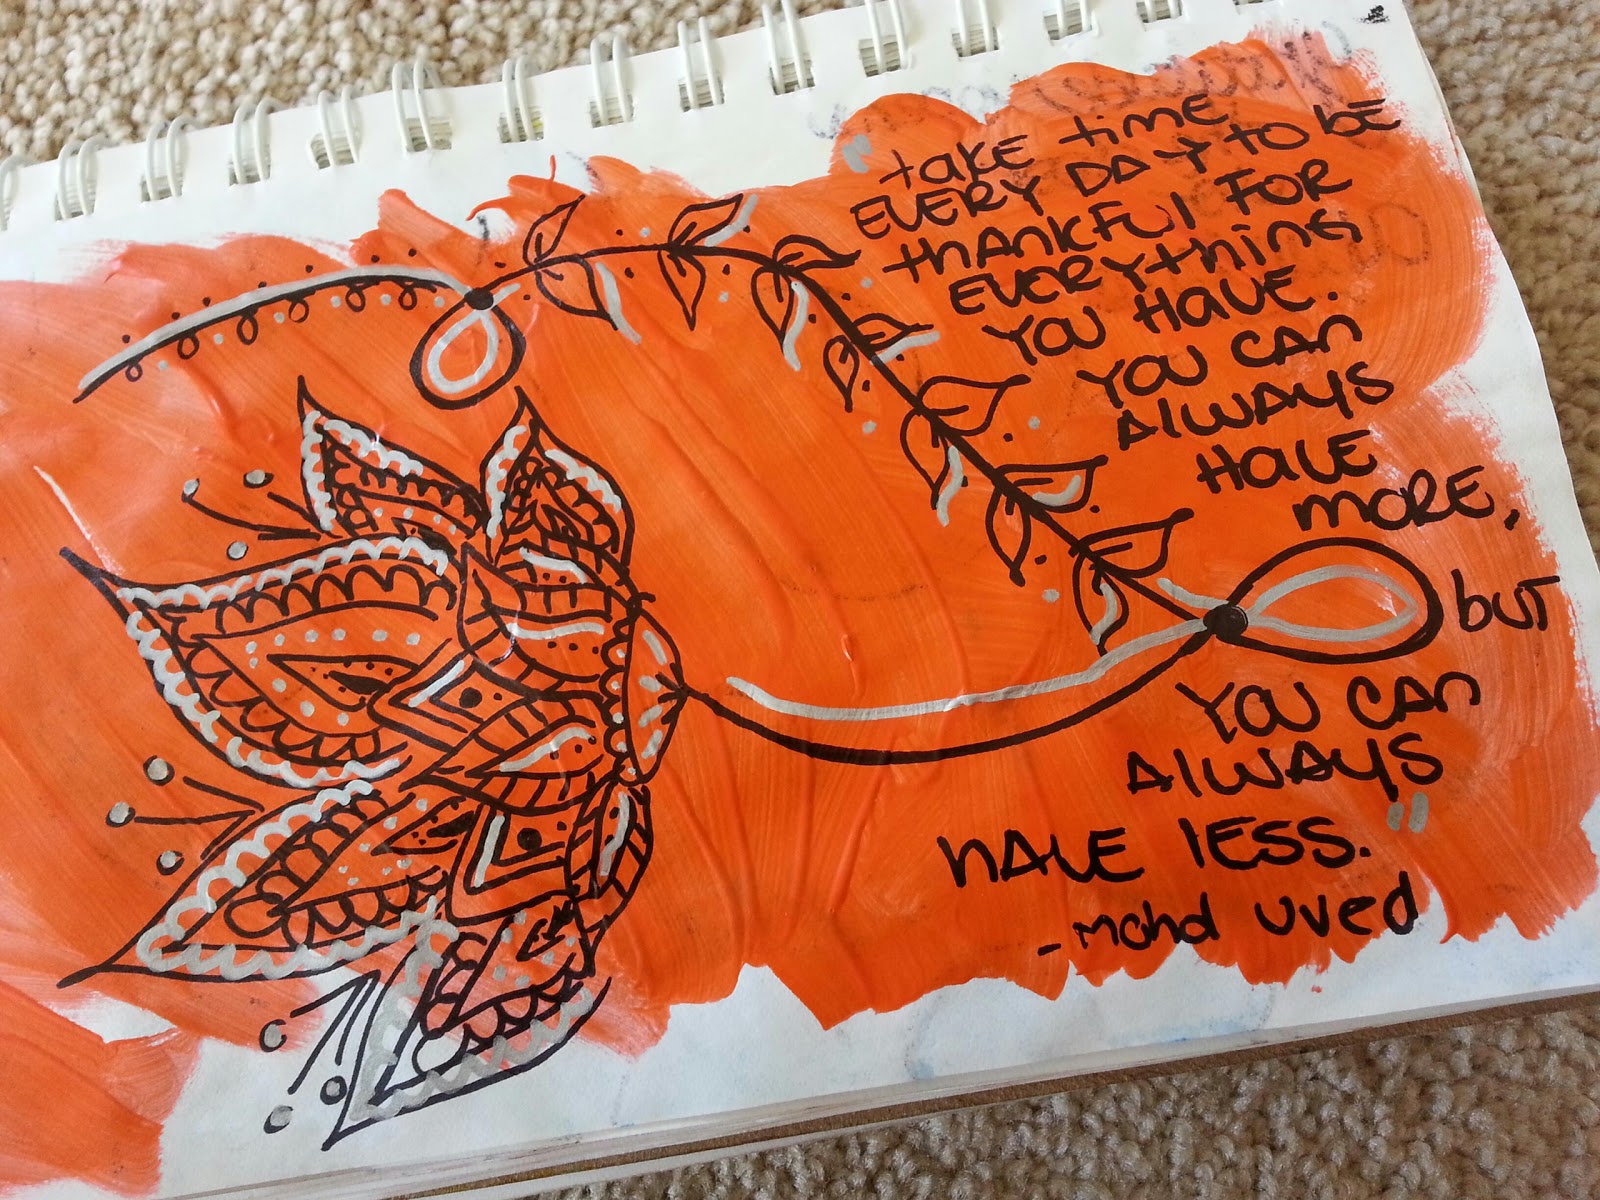 "take time
EVERY DAY to BE
thankful FOR
EVERYthing
YOU HAVE.
YOU CAN
ALWAYS
HAVE
MORE,
but
YOU CAN
ALWAYS
HAVE LESS."
-Mohd uved